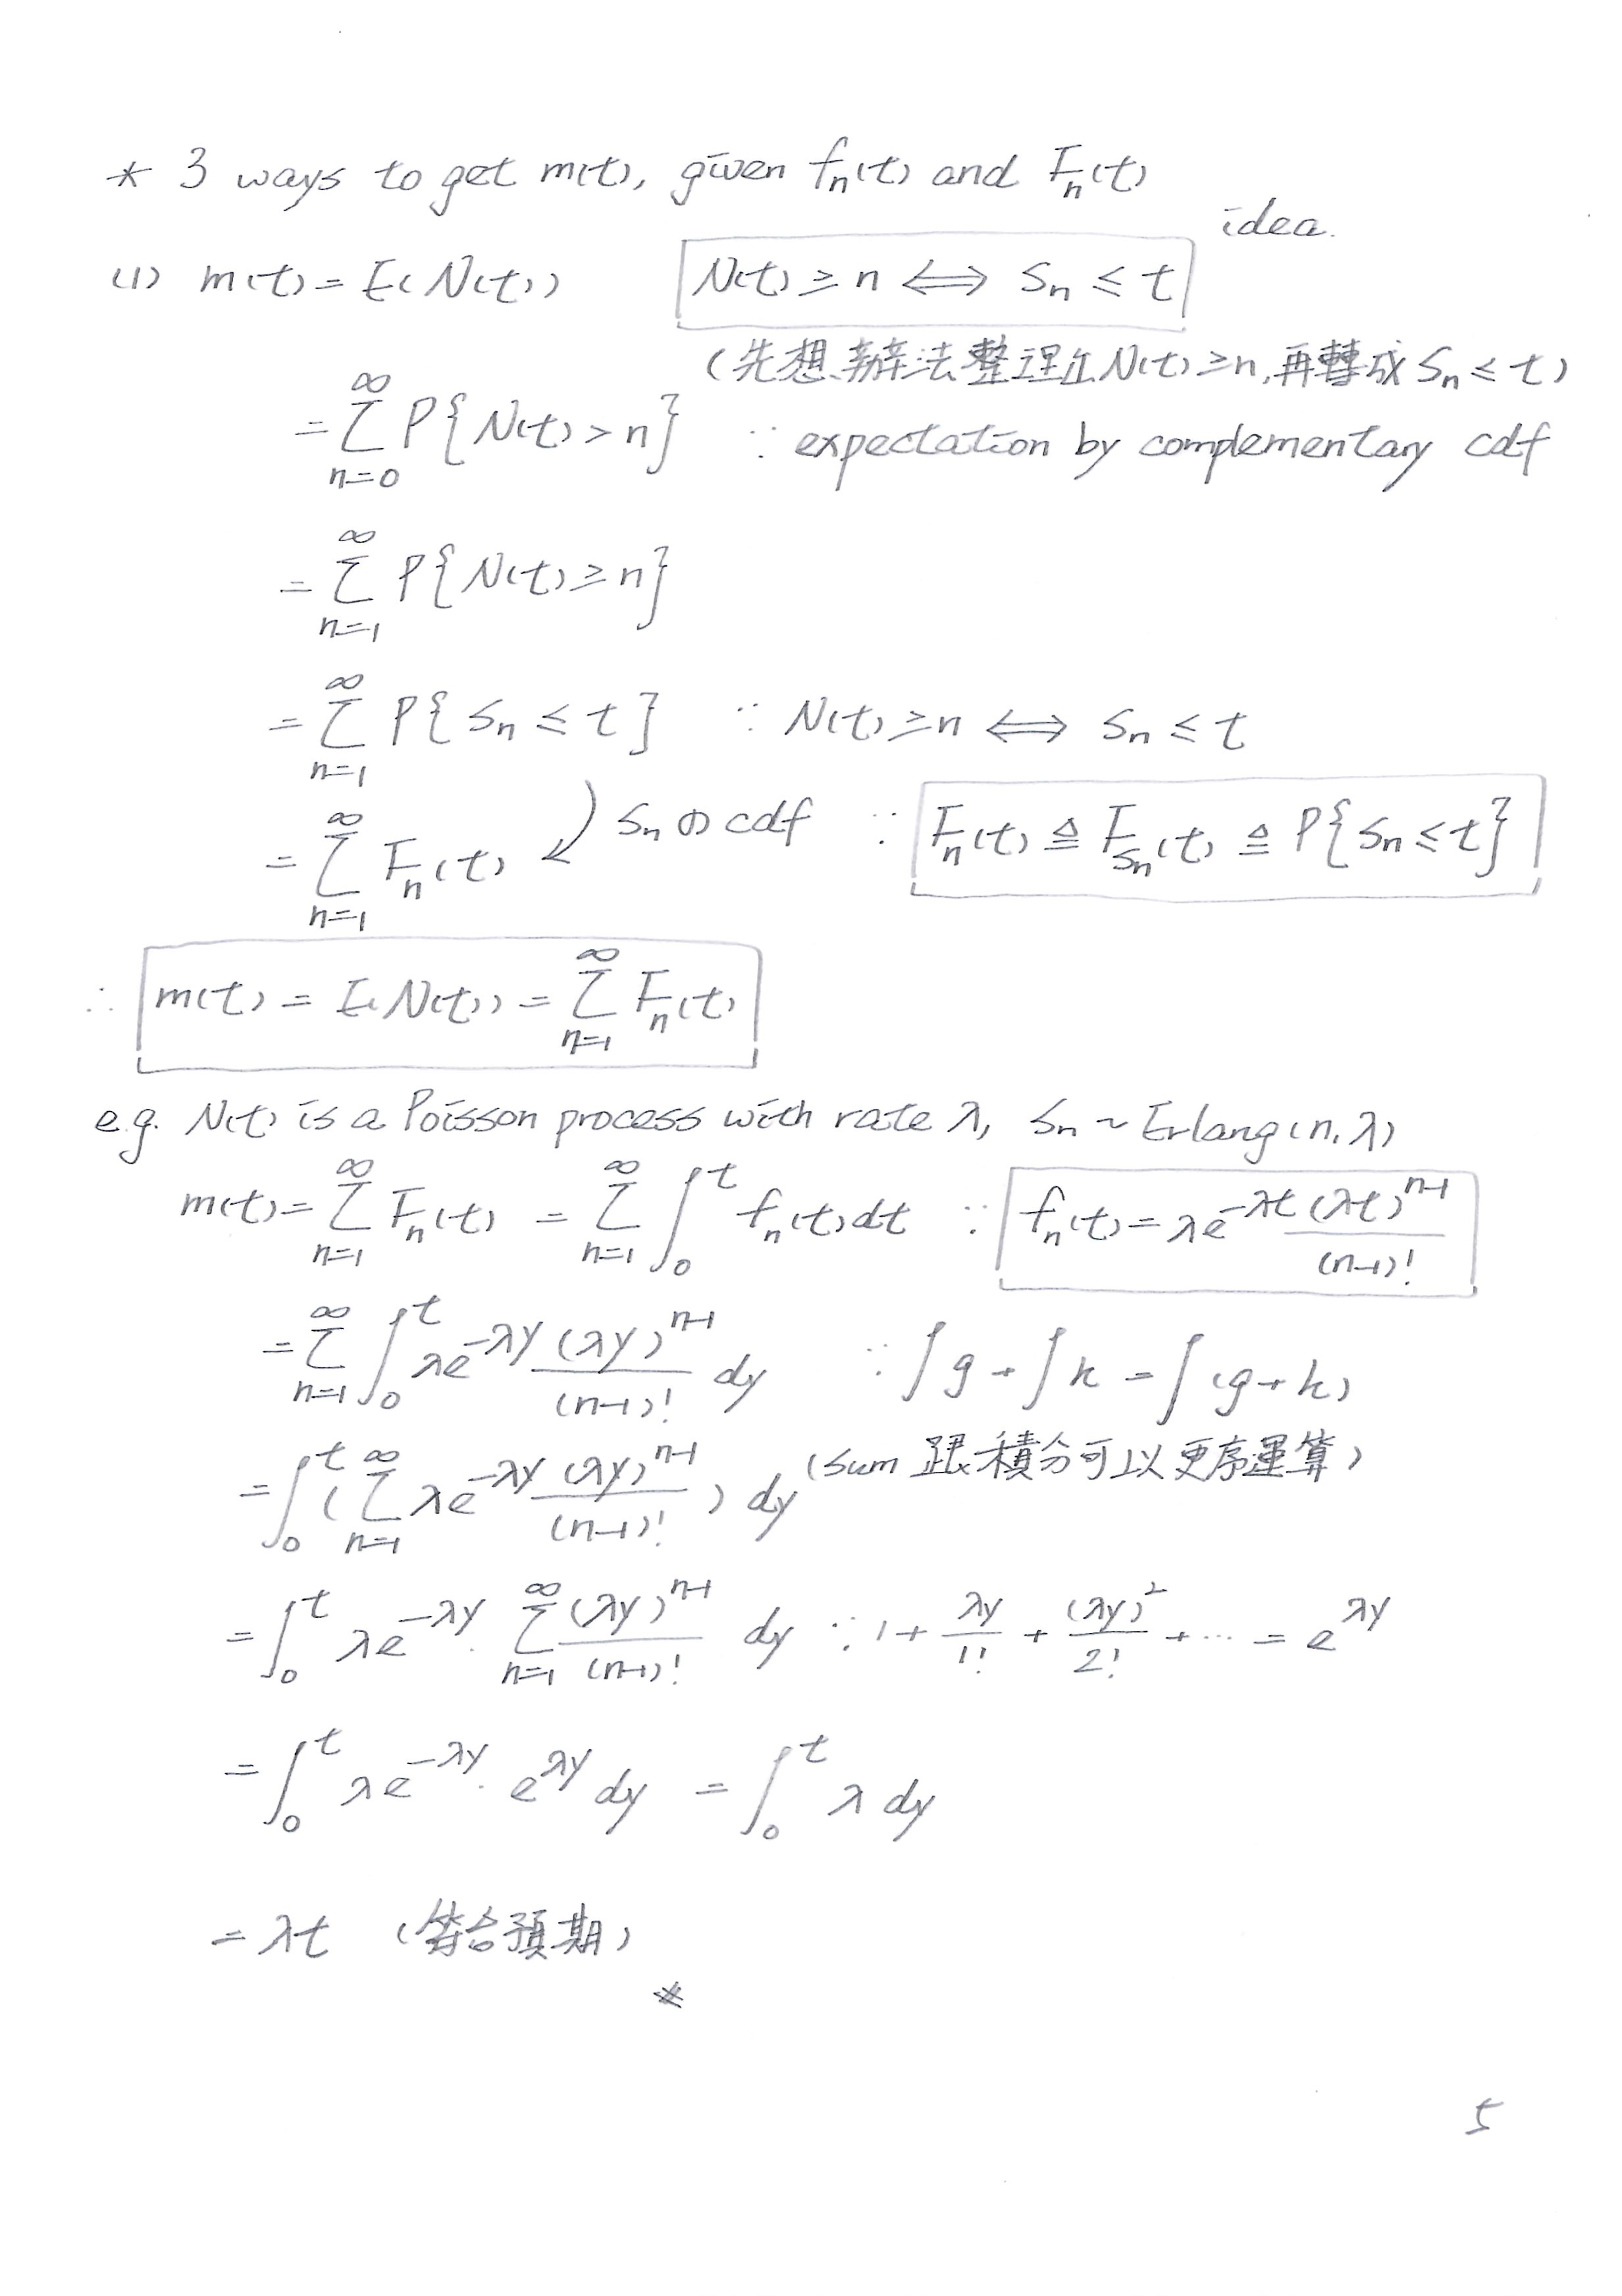 * 3 ways to get m(t), given fn(t) and Fn(t)
idea.
(1) m(t) = E(N(t)) N(t) ≥ n ⟺ Sn ≤ t
(先想辦法整理出N(t) ≥ n, 再轉成 Sn ≤ t)
= ∞ Σ n=0 P{N(t) > n} ∵ expectation by complementary cdf
= ∞ Σ n=1 P{N(t) ≥ n}
= ∞ Σ n=1 P{Sn ≤ t} ∵ N(t) ≥ n ⟺ Sn ≤ t
= ∞ Σ n=1 Fn(t) ↙ Sn の cdf ∵ Fn(t) ≜ FSn(t) ≜ P{Sn ≤ t}
∴ m(t) = E(N(t)) = ∞ Σ n=1 Fn(t)
e.g. N(t) is a Poisson process with rate λ, Sn ~ Erlang(n, λ)
m(t) = ∞ Σ n=1 Fn(t) = ∞ Σ n=1 ∫₀^t fn(t) dt ∵ fn(t) = λe^-λt (λt)^n-1 / (n-1)!
= ∞ Σ n=1 ∫₀^t λe^-λy (λy)^n-1 / (n-1)! dy ∵ ∫g + ∫h = ∫(g+h)
= ∫₀^t ( ∞ Σ n=1 λe^-λy (λy)^n-1 / (n-1)! ) dy (sum 跟積分可以更序運算)
= ∫₀^t λe^-λy · ∞ Σ n=1 (λy)^n-1 / (n-1)! dy ∵ 1 + λy / 1! + (λy)^2 / 2! + ... = e^λy
= ∫₀^t λe^-λy · e^λy dy = ∫₀^t λ dy
= λt (符合預期)
※
5